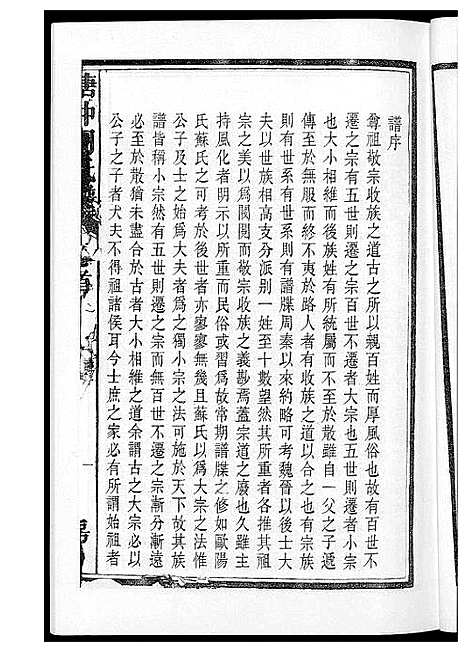 譜序
尊祖敬宗收族之道古之所以親百姓而厚風俗也有百世不
遷之宗有五世則遷之宗百世不遷者大宗也五世則遷者小宗
也大小相維而後族姓有所統屬而不至於散雖自一父之子遞
傳至於無服而終不夷於路人者有收族之道以合之也有宗族
則有世系有世系則有譜牒周秦以來約略可考魏晉以後士大
夫以世族相高支分派別一姓至十數望然其所重者各推其
宗之美以為閥閱而敬宗收族之義尠焉蓋宗道之廢也久雖主
持風化者明示以所重而民俗或習為故常期譜牒之修如歐陽
氏蘇氏之可考於後世者亦寥寥無幾且蘇氏以為大宗之法惟
公子及士之始為大夫者為之獨小宗之法可施於天下故其族
譜皆稱小宗然有五世則遷之宗而無百世不遷之宗漸分漸遠
必至於散猶未盡合於古者大小相維之道余謂古之大宗必以
公子之子者大夫不得祖諸侯耳今士庶之家必有所謂始祖者
一